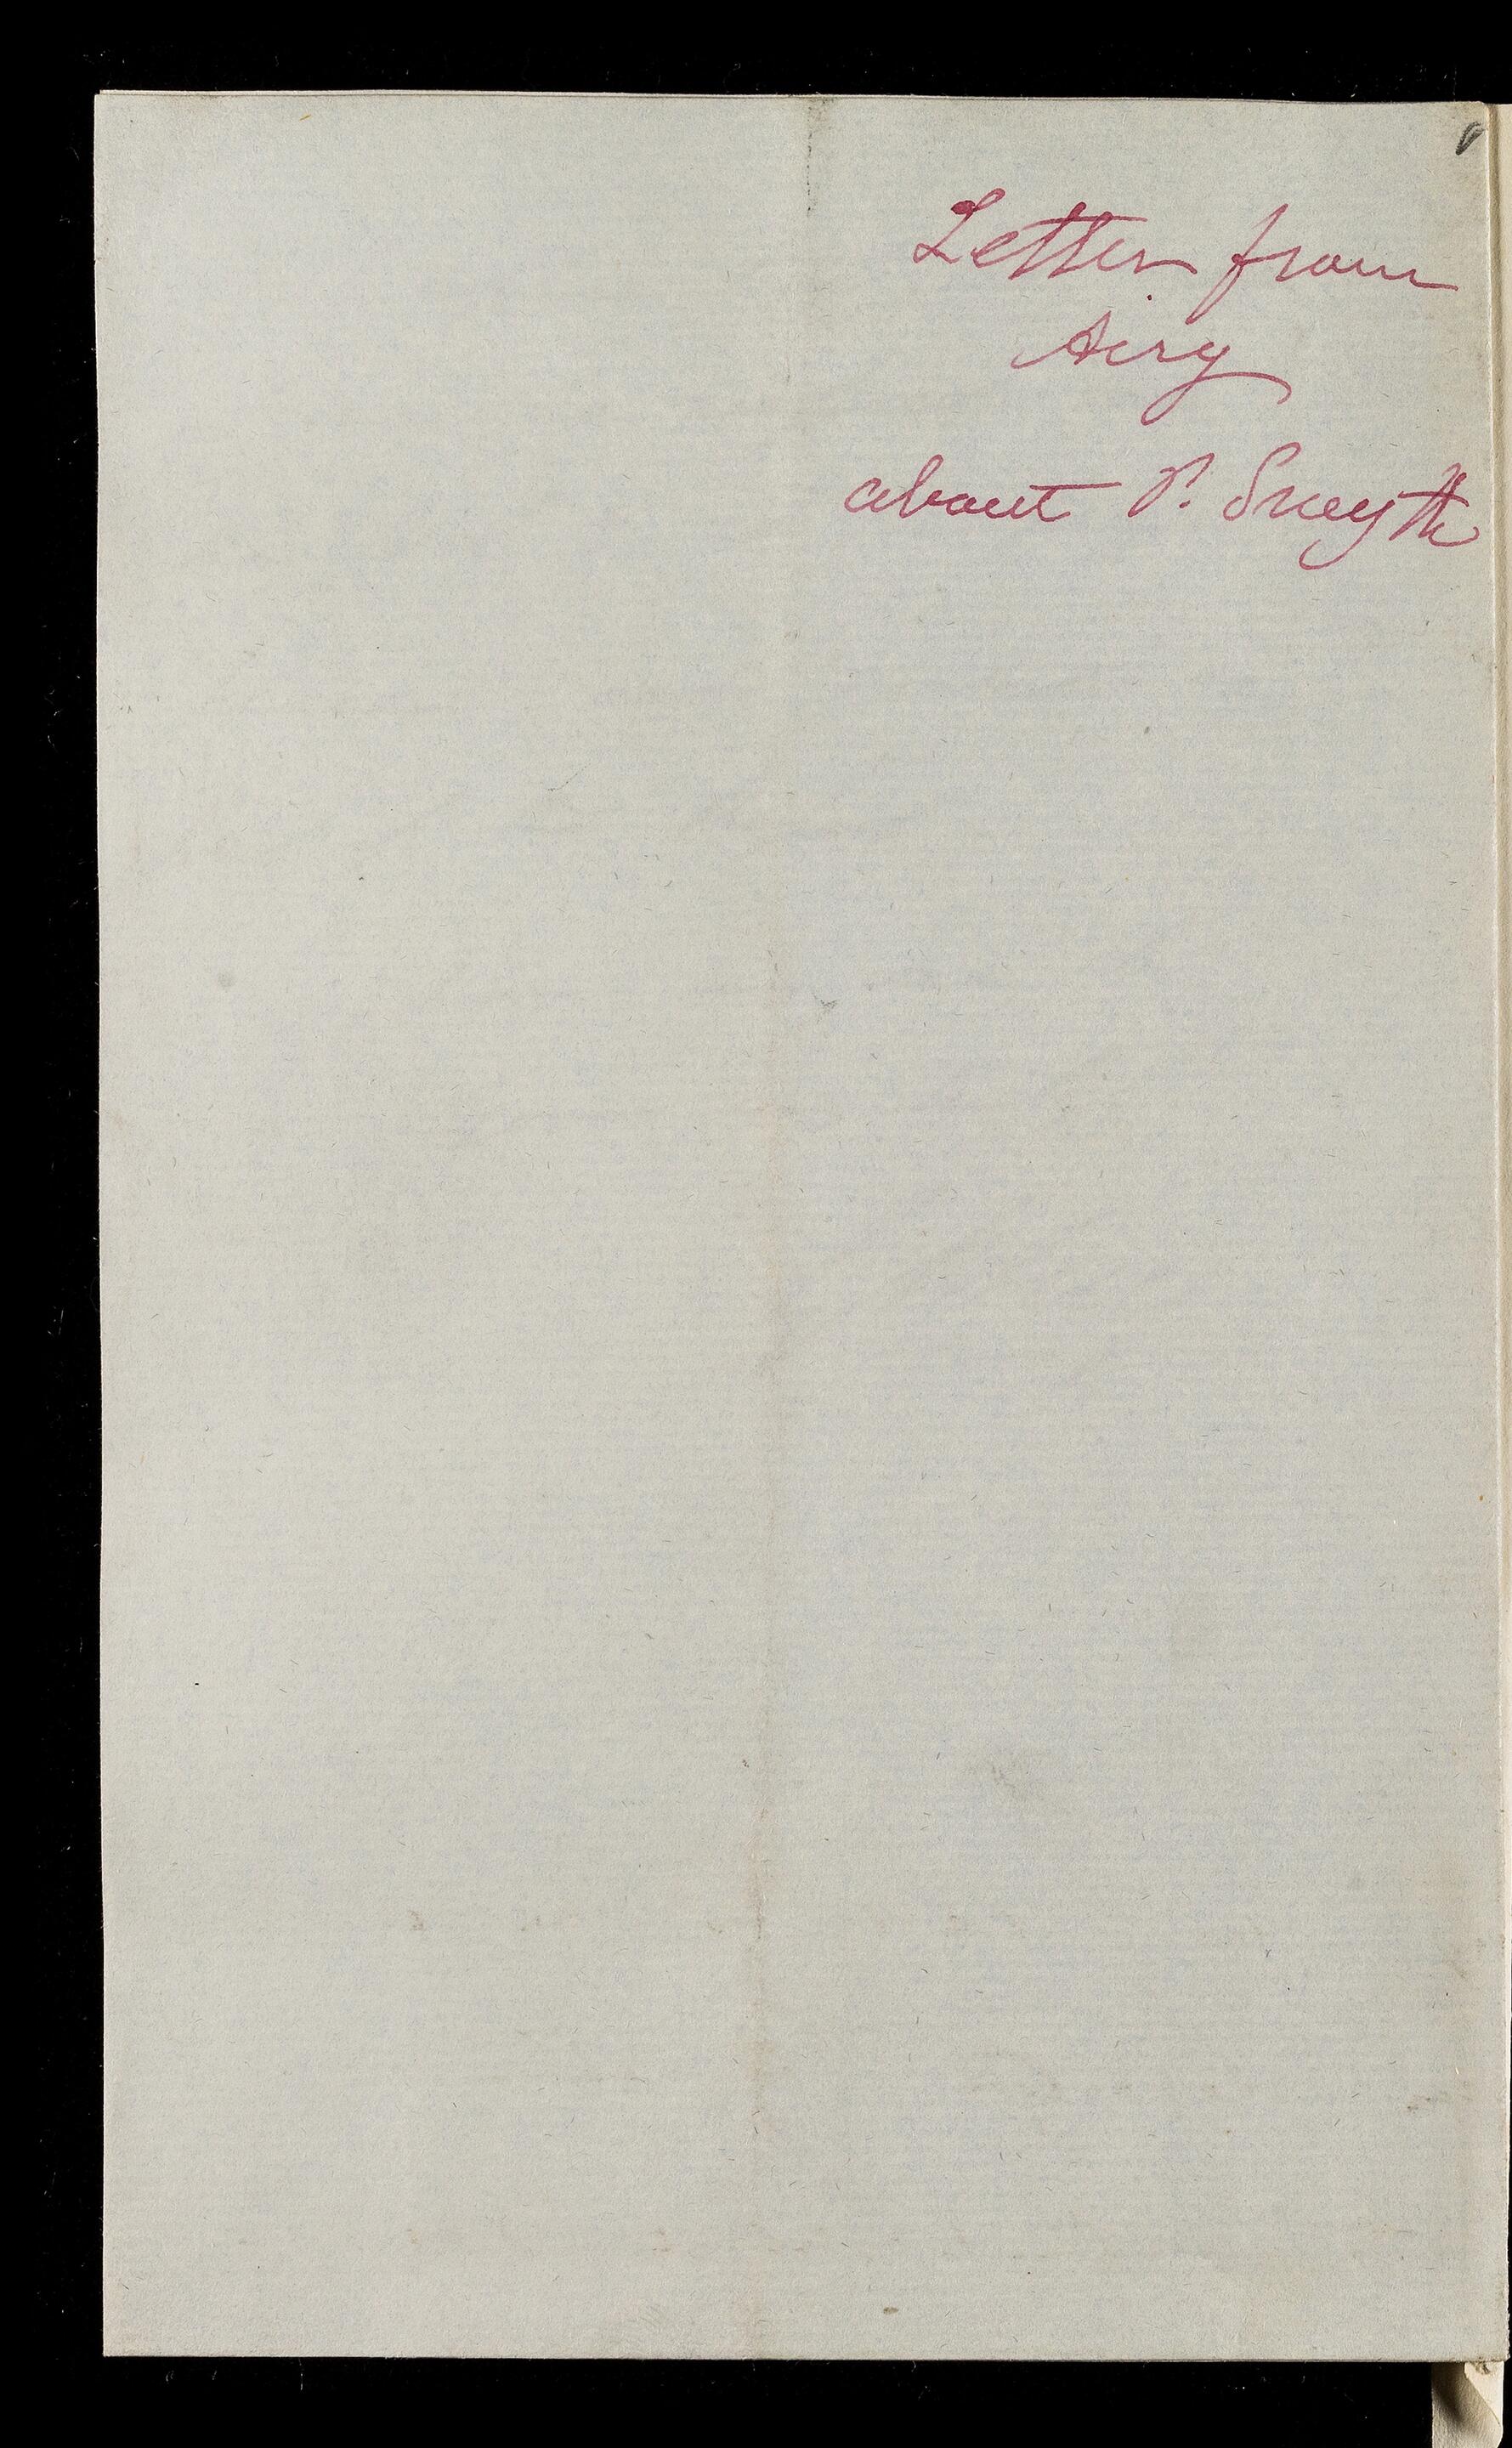 Letter from
Airy
about P. Smyth